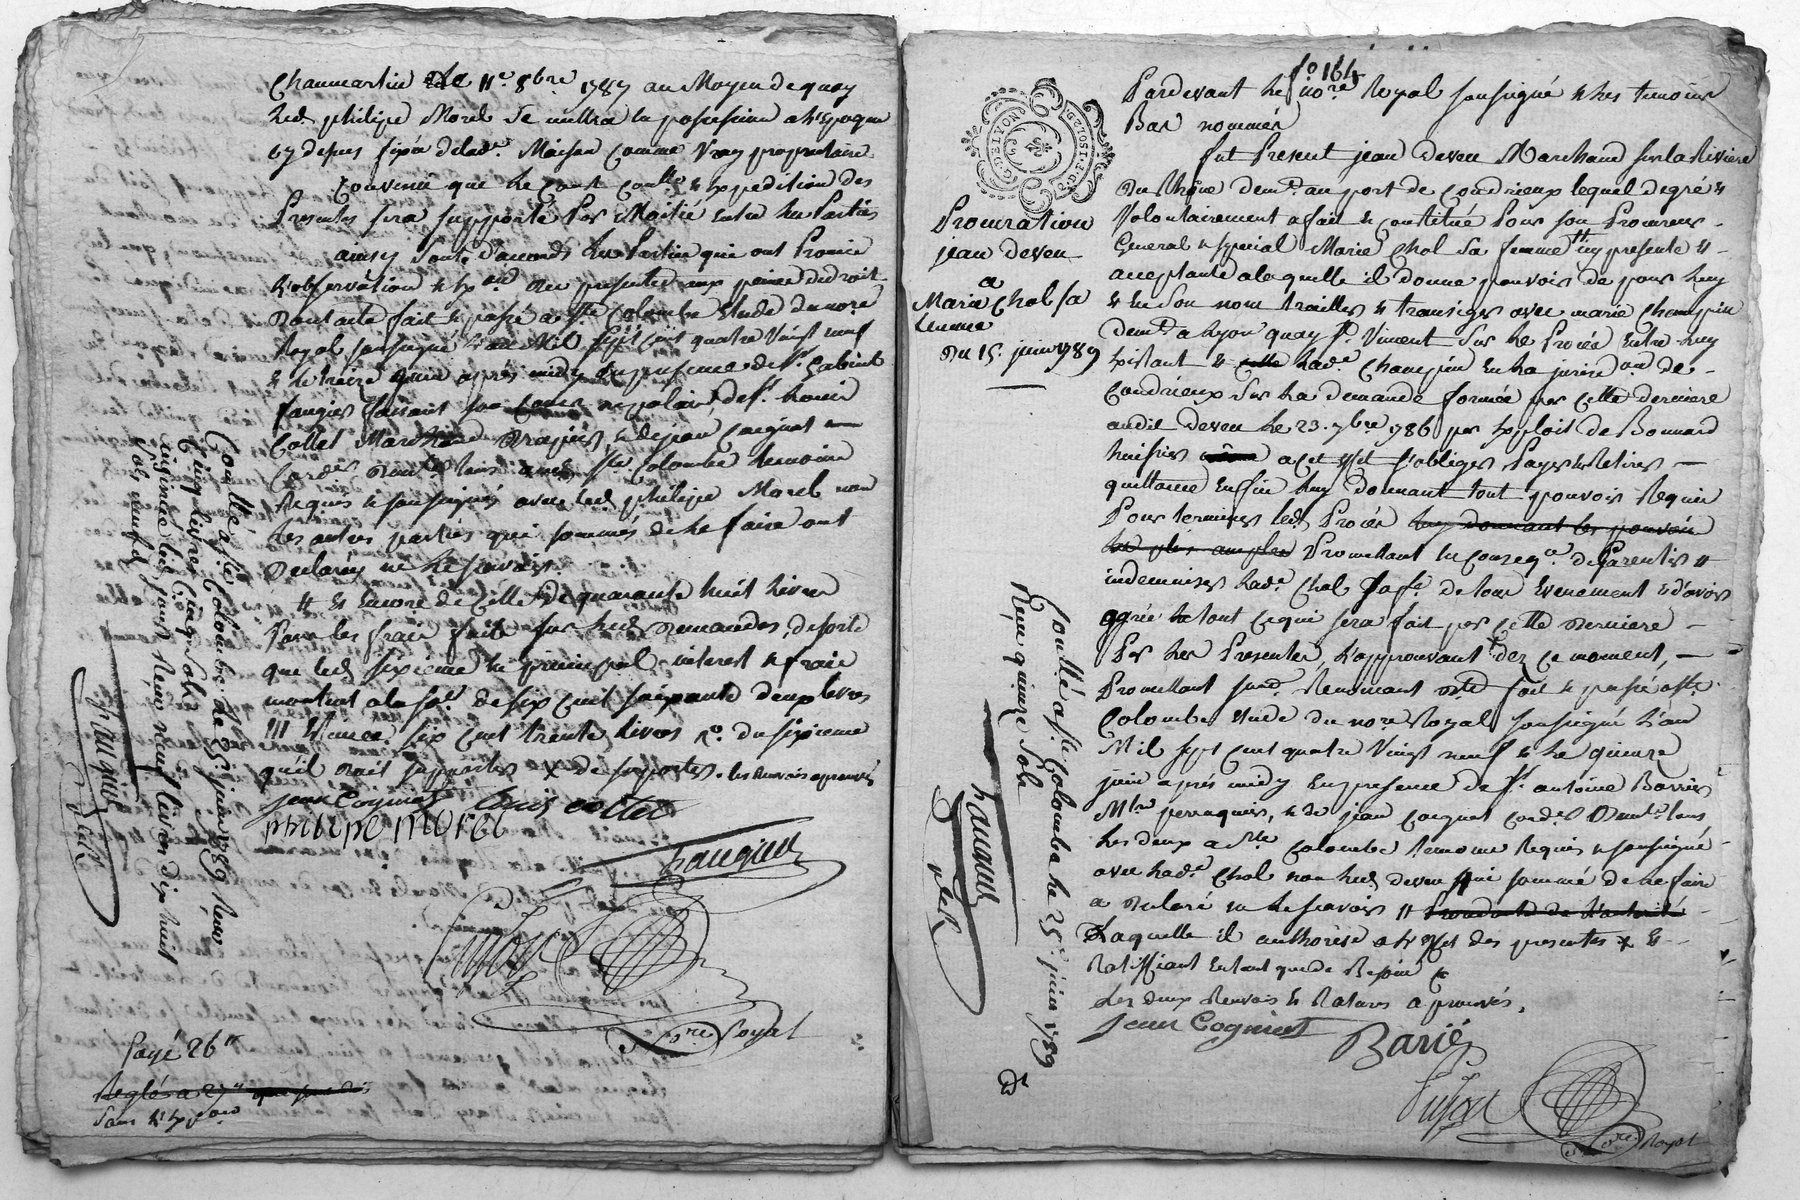 Chaumartin le 11e. 8bre 1787 au Moyen de quoy
led. philipe Morel se mettra en possession a l'Epoque
cy depus fixée de lade. Maison comme Vray proprietaire
Convenu que le Cout Coulle & Expedition des
Presentes sera supporté Par Moitié Entre les Parties
ainsy sont d'accords les Parties qui ont Promis
l'observation & Exon des presentes aux peines de droit
Dont acte fait & passé a Ste Colombe Etude du nore
Royal soussigné l'an Mil sept cent quatre Vingt neuf
& le treize juin après midy en presence de Sr. Gabriel
faugier faisant son Cours de palais, de Sr. Louis
Collet Marchand Drapier & de jean Cognet
Cordier demts. tous aud. Ste. Colombe temoins
Requis & soussignés avec led. philipe Morel non
les autres parties qui sommés de le faire ont
Declaré ne le sçavoir
# & Encore de Celle de quarante huit livres
Pour les frais faits sur lesd. demandes, desorte
que led. sixieme en principal interet & frais
montent a la so. de six cent soixante deux livres
six cent trente livres po. du sixieme
qu'il doit supporter X de supporter. les renvois aprouvés
jean Cogniet Louis collet
philipe morel
faugier
Pujot
Nore. Royal
Controllé a Ste Colombe le 25. juin 1789 Reçu
Cinq livres Cinq sols
insinué led. jour Reçu neuf livres dix huit
sols neuf d.
faugier
Payé 26#
Reglés a 27#
sans l'Expon
fo. 164
G. DE LYON
Procuration
jean deveu
a
Marie Chol sa
femme
Du 15. juin 1789
Pardevant le nore Royal soussigné & les temoins
Bas nommés
fut Present jean deveu Marchand sur la Riviere
du Rhône demt. au port de Condrieux lequel de gré &
Volontairement a fait & constitué Pour son Procureur
General & special Marie Chol sa femme # icy presente &
acceptante a laquelle il donne pouvoir de pour luy
& En son nom traiter & transiger avec marie Champin
demt. a Lyon quay St. Vincent Sur le Procès Entre luy
Existant & lade. Champin En la juridon de
Condrieux Sur la demande formée par cette derniere
audit deveu le 23. 7bre 1786 par Exploit de Bonnard
huissier a cet Effet s'obliger Payer & Retirer
quittance Enfin luy donnant tout pouvoir Requis
Pour terminer led. Procès luy donnant les pouvoir
les plus amples Promettant En Conseqce. de Garentir &
indemniser lade. Chol sa fe. de tous Evenement & d'avoir
agrée le tout ce qui sera fait par cette derniere
Par les Presentes, l'approuvant dez ce moment,
Promettant Renonçant Dte. fait & passé a Ste
Colombe Etude du nore Royal soussigné l'an
Mil sept cent quatre Vingt neuf & le quinze
juin après midy En presence de Sr. antoine Barrié
Mtre perruquier, & de jean Cogniet cordier Demts. tous
les deux a Ste Colombe temoins Requis & soussignés
avec lade. Chol non led. deveu qui sommé de le faire
a declaré ne le sçavoir # Procedante de l'autorité
Laquelle il authorise a l'Effet des presentes X &
Ratiffiant En tant que de Besoin
Les deux Renvois & Ratures aprouvés.
Jean Cogniet
Barié
Pujot
Nore. Royal
Controllé a Ste. Colombe le 25. juin 1789
Reçu quinze sols
faugier